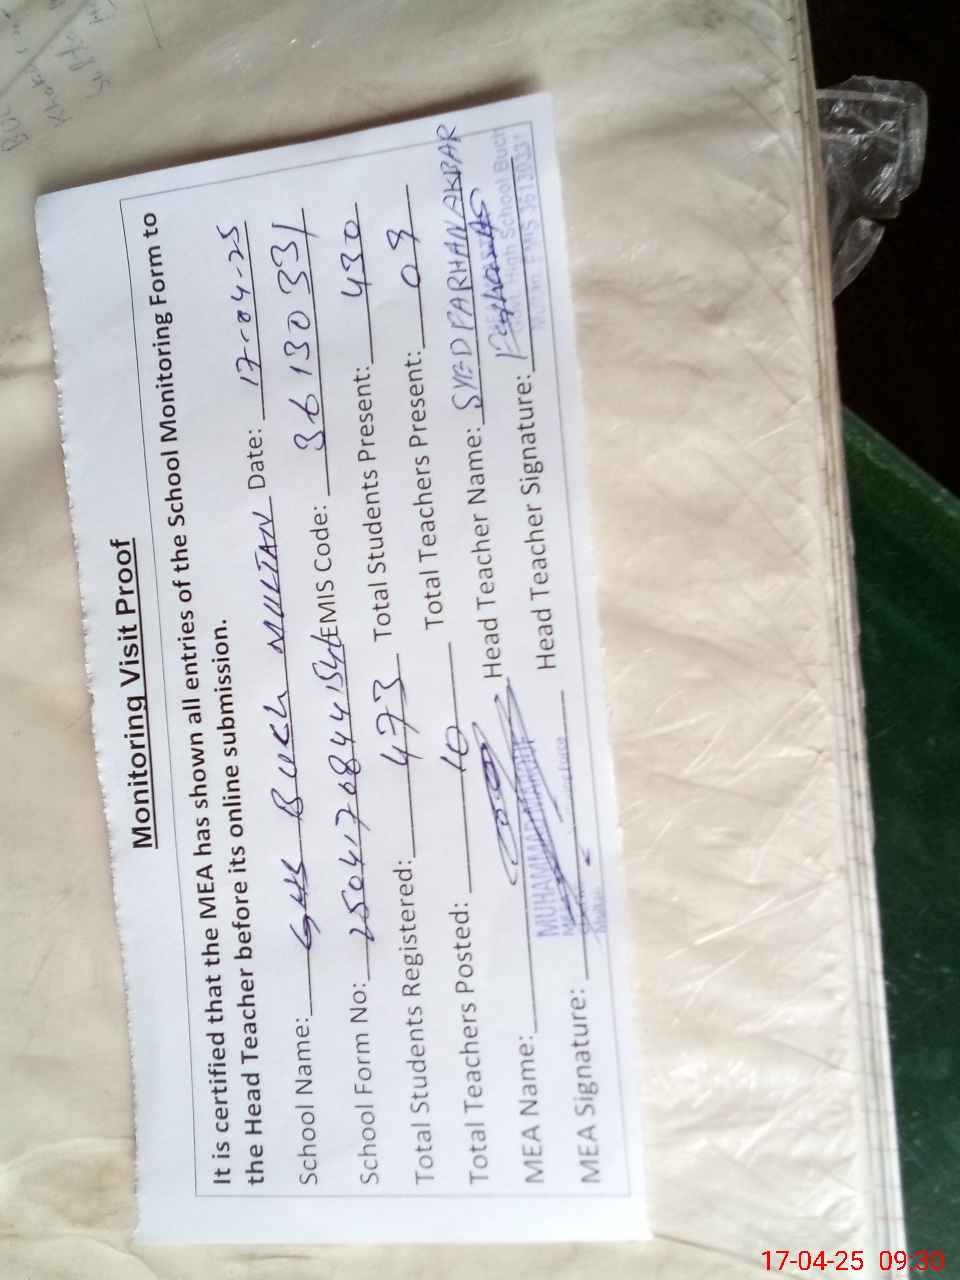 Monitoring Visit Proof
It is certified that the MEA has shown all entries of the School Monitoring Form to
the Head Teacher before its online submission.
School Name: GHS Buch MULTAN Date: 17-04-25
School Form No: 250417084415 EMIS Code: 36130331
Total Students Registered: 473 Total Students Present: 430
Total Teachers Posted: 10 Total Teachers Present: 09
MEA Name: Head Teacher Name: SYED FARHAN AKBAR
MUHAMMAD
MEA Signature: Head Teacher Signature:
High School Buch
Multan. EMIS 36130331
17-04-25 09:30